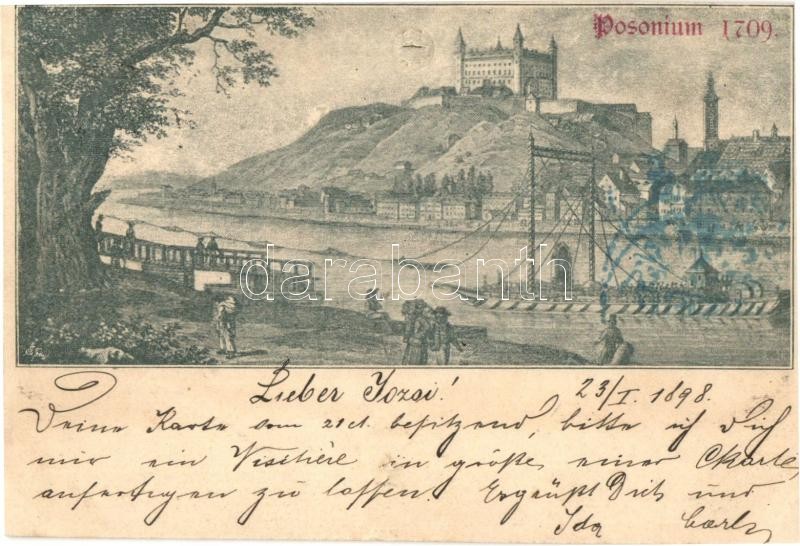 Posonium 1709.
darabanth
Lieber Jozsi! 23/I. 1898.
Deine Karte vom 21 ct. besitzend, bitte ich Dich
mir ein in größe einer Karte,
anfertigen zu lassen. Dich und
Ida Carl